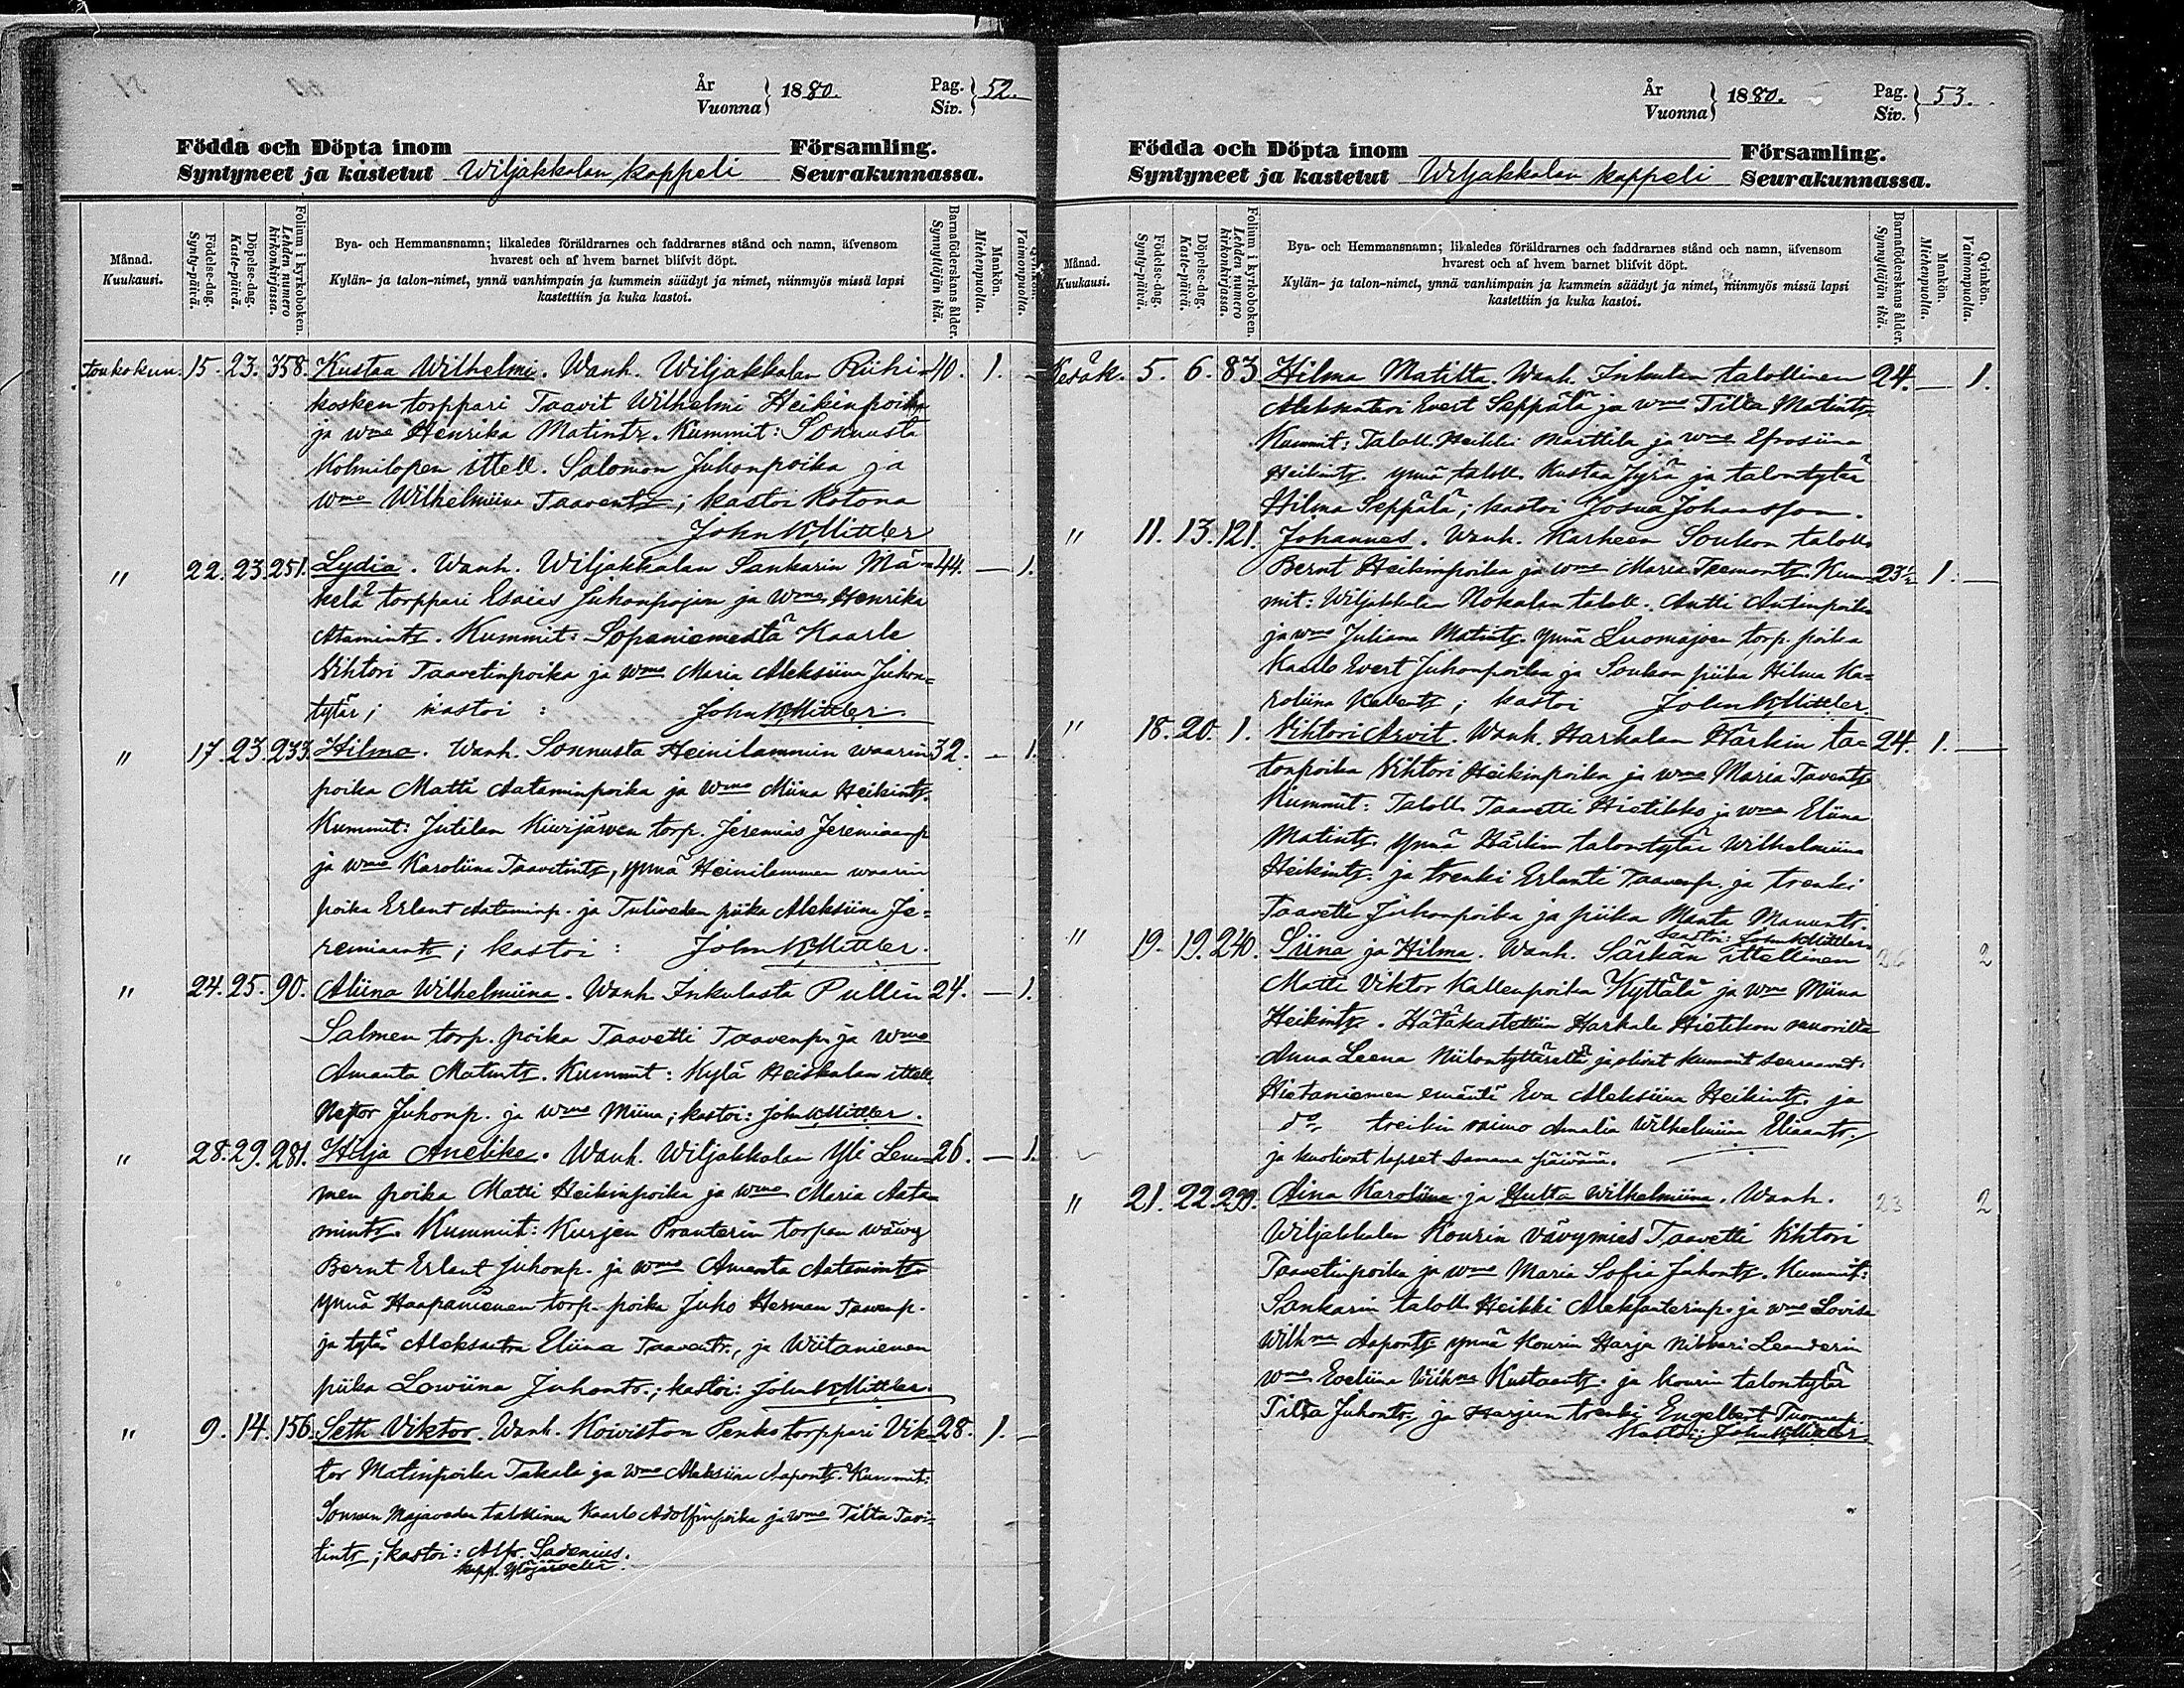 År
Vuonna } 1880. Pag.
Siv. } 52.
Födda och Döpta inom Församling.
Syntyneet ja kastetut Wiljakkalan kappeli Seurakunnassa.
Månad.
Kuukausi.
Födelse-dag.
Synty-päivä.
Döpelse-dag.
Kaste-päivä.
Folium i kyrkoboken.
Lehden numero
kirkonkirjassa.
Bya- och Hemmansnamn; likaledes föräldrarnes och faddrarnes stånd och namn, äfvensom
hvarest och af hvem barnet blifvit döpt.
Kylän- ja talon-nimet, ynnä vanhimpain ja kummein säädyt ja nimet, niinmyös missä lapsi
kastettiin ja kuka kastoi.
Barnaföderskans ålder.
Synnyttäjän ikä.
Mankön.
Miehenpuolta.
Vaimonpuolta.
toukokuu. 15. 23. 358. Kustaa Wilhelmi. Wanh. Wiljakkalan Riihi- 40. 1. —
kosken torppari Taavit Wilhelmi Heikinpoika
ja wmo Henrika Matintr. Kummit: Sonnusta
Kolmilopen ittell. Salomon Juhonpoika ja
wmo Wilhelmiina Taaventr; kastoi kotona
John W Mittler
" 22. 23. 251. Lydia. Wanh. Wiljakkalan Sankarin Mä- 44. — 1.
kelä torppari Esaias Juhonpojan ja wmo Henrika
Atamintr. Kummit: Sopeniemestä Kaarle
Vihtori Taavetinpoika ja wmo Maria Aleksiina Juhon=
tytär; kastoi : John W Mittler.
" 17. 23. 233. Hilma. Wanh. Sonnusta Heinilammin waarin 32. — 1.
poika Matti Aataminpoika ja wmo Miina Heikintr.
Kummit: Jutilan Kiwijärwen torp. Jeremias Jeremiaanp
ja wmo Karoliina Taavetintr, ynnä Heinilammen waarin
poika Erlant Aataminp. ja Tuliveden piika Aleksiina Je=
remiaantr; kastoi : John W Mittler.
" 24. 25. 90. Aliina Wilhelmiina. Wanh. Inkulasta Pullin 24. — 1.
Salmen torp. poika Taavetti Taavenp. ja wmo
Amanta Matintr. Kummit: Kylä Heiskalan ittell.
Nestor Juhonp. ja wmo Miina; kastoi: John W Mittler.
" 28. 29. 281. Hilja Anelike. Wanh. Wiljakkalan Yli Lem- 26. — 1.
men poika Matti Heikinpoika ja wmo Maria Aata-
mintr. Kummit: Kurjen Pranterin torpan wäwy
Bernt Erlant Juhonp. ja wmo Amanta Aatamintr
ynnä Haapaniemen torp. poika Juho Herman Taavenp.
ja tytär Aleksantra Eliina Taaventr., ja Wiitaniemen
piika Lowiina Juhontr.; kastoi: John W Mittler.
" 9. 14. 156. Seth Viktor. Wanh. Koiviston Penko torppari Vik- 28. 1. —
tor Matinpoika Takala ja wmo Aleksiina Aapontr. Kummit:
Sonnun Majaveden talollinen Kaarlo Adolfinpoika ja wmo Tilta Tavi-
tintr; kastoi: Alfr. Sadenius.
kapp. Ylöjärvellä.
År
Vuonna } 1880. Pag.
Siv. } 53.
Födda och Döpta inom Församling.
Syntyneet ja kastetut Wiljakkalan kappeli Seurakunnassa.
Månad.
Kuukausi.
Födelse-dag.
Synty-päivä.
Döpelse-dag.
Kaste-päivä.
Folium i kyrkoboken.
Lehden numero
kirkonkirjassa.
Bya- och Hemmansnamn; likaledes föräldrarnes och faddrarnes stånd och namn, äfvensom
hvarest och af hvem barnet blifvit döpt.
Kylän- ja talon-nimet, ynnä vanhimpain ja kummein säädyt ja nimet, niinmyös missä lapsi
kastettiin ja kuka kastoi.
Barnaföderskans ålder.
Synnyttäjän ikä.
Mankön.
Miehenpuolta.
Qvinkön.
Vaimonpuolta.
Kesäk. 5. 6. 83 Hilma Matilta. Wanh. Inkulan talollinen 24. — 1.
Aleksanteri Evert Seppälä ja wmo Tilta Matintr
Kummit: Taloll. Heikki Marttila ja wmo Efrosiina
Heikintr. ynnä taloll. Kustaa Jyrä ja talontytär
Hilma Seppälä; kastoi Josua Johansson.
" 11. 13. 121. Johannes. Wanh. Karheen Soukon taloll.
Bernt Heikinpoika ja wmo Maria Teemontr. Kum- 23½ 1. —
mit: Wiljakkalan Nokalan taloll. Antti Antinpoika
ja wmo Juliana Matintr. ynnä Suomajoen torp. poika
Kaarlo Evert Juhonpoika ja Soukon piika Hilma Ka=
roliina Kalentr; kastoi John W Mittler.
" 18. 20. 1. Vihtori Arvit. Wanh. Harhalan Härkin ta= 24. 1. —
lonpoika Vihtori Heikinpoika ja wmo Maria Taventr
Kummit: Taloll. Taavetti Hietikko ja wmo Eliina
Matintr. ynnä Härkin talontytär Wilhelmiina
Heikintr. ja trenki Erlanti Taavenp. ja trenki
Taavetti Juhonpoika ja piika Manta Manuntr.
kastoi: John W Mittler.
" 19. 19. 240. Siina ja Hilma. Wanh. Särkän ittellinen 26 2
Matti Viktor Kallenpoika Kyttälä ja wmo Miina
Heikintr. Hätäkastettiin Harhala Hietikon
Anna Leena Niilontyttäreltä ja olivat kummit seuraavat:
Hietaniemen emäntä Eva Aleksiina Heikintr. ja
do. treikin vaimo Amalia Wilhelmiina Eliaantr.
ja kuolivat lapset samana päivänä.
" 21. 22. 299. Aina Karoliina ja Hulta Wilhelmiina. Wanh. 23 2
Wiljakkalan Kourin vävymies Taavetti Vihtori
Taavetinpoika ja wmo Maria Sofia Juhontr. Kummit:
Sankarin taloll. Heikki Aleksanterinp. ja wmo Lovisa
Wilhma Aapontr ynnä Kourin Harja nikkari Leanderin
wmo Eveliina Wilhma Kustaantr. ja Kourin talontytär
Tilta Juhontr. ja Harjun trenki Engelbert Tuomaanp.
Kastoi: John W Mittler.